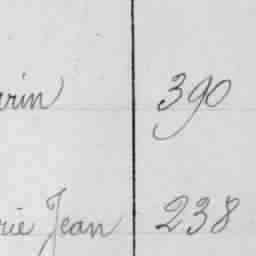 arin 390
rie Jean 238